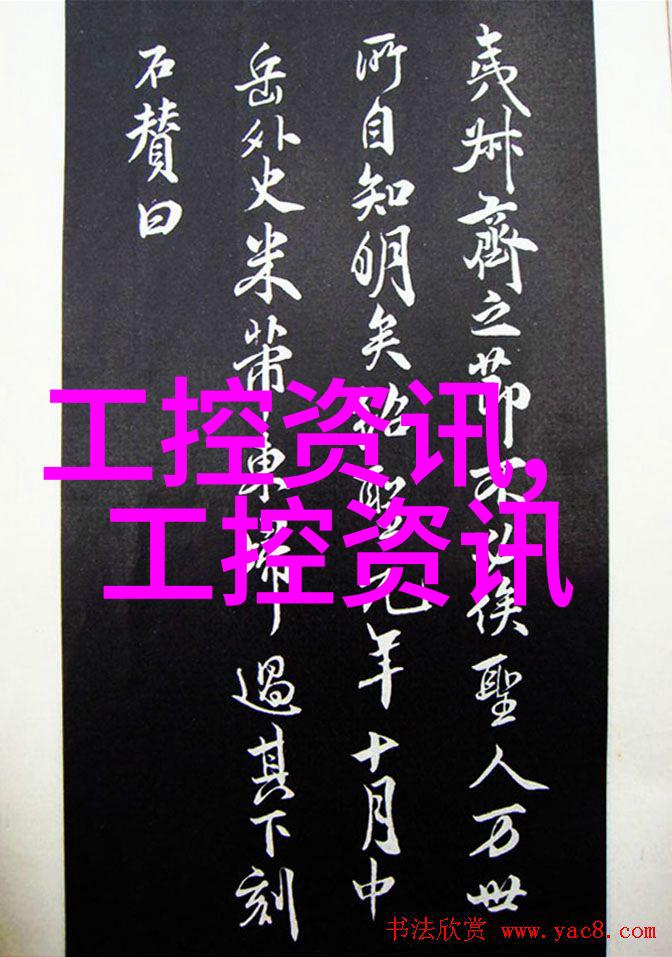 夷叔齊之節不必俟聖人万世
所自知明矣紹聖元年十月中
岳外史米芾東歸過其下刻
石贊曰
工控资讯,
工控资讯
书法欣赏 www.yac8.com